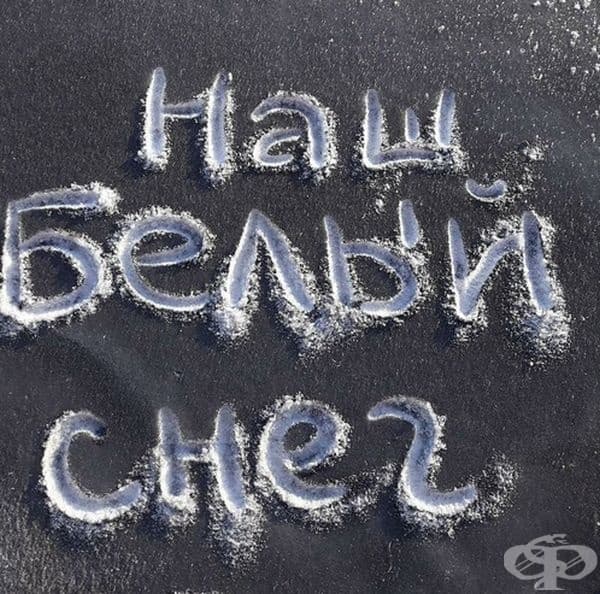 Наш
Белый
снег